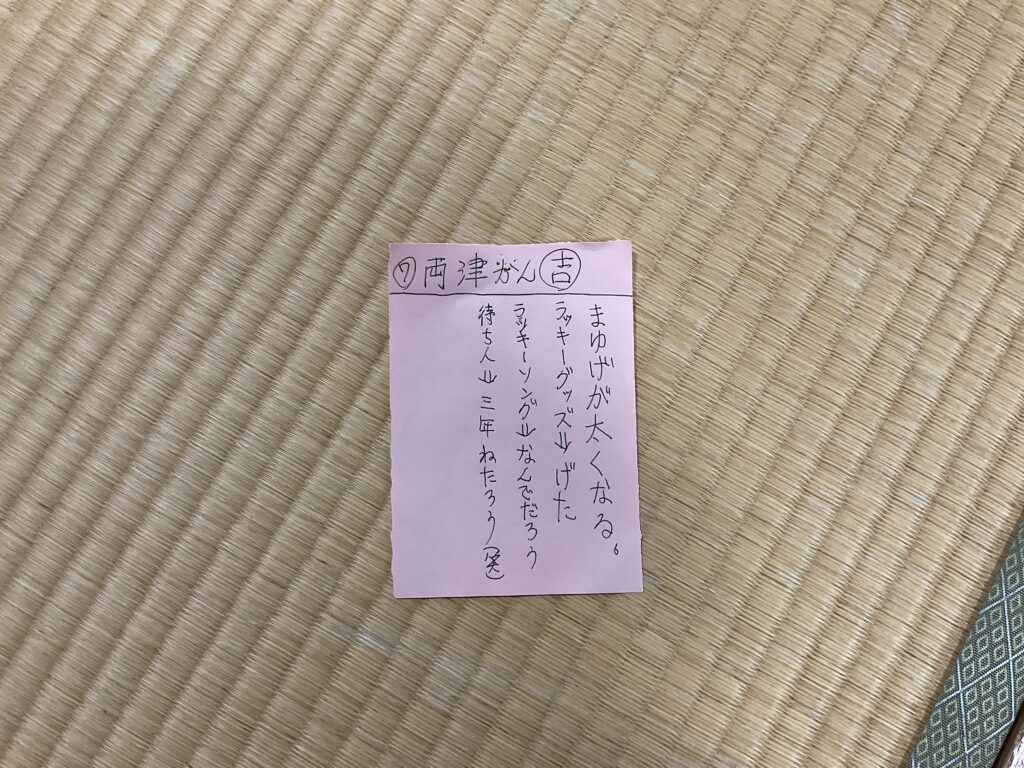 ⑦両津がん㊉吉
まゆげが太くなる。
ラッキーグッズ⇒げた
ラッキーソング⇒なんでだろう
待ち人⇒三年ねたろう(笑)